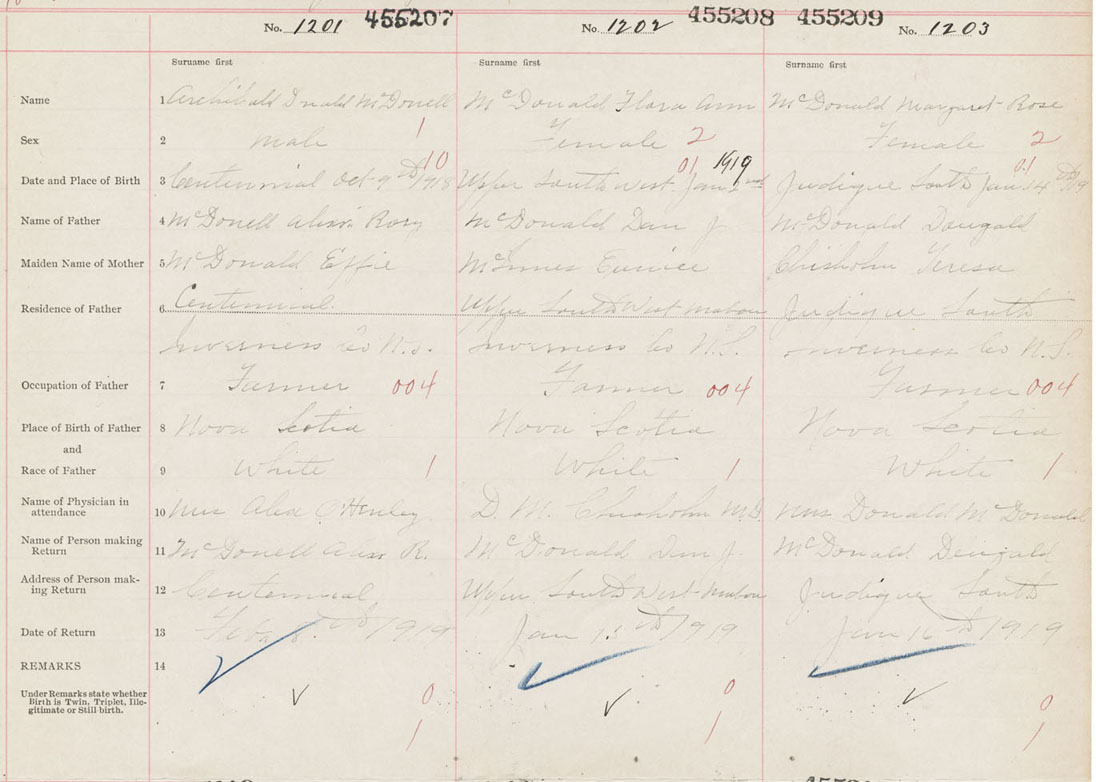 No. 1201 455207 No. 1202 455208 455209 No. 1203
Surname first Surname first Surname first
Name 1 Archibald Donald McDonell McDonald Flora Ann McDonald Margaret Rose
Sex 2 Male 1 Female 2 Female 2
10 01 1919 01
Date and Place of Birth 3 Centennial Oct 9th 1918 Upper South West Jan 2nd Judique South Jan 14th /19
Name of Father 4 McDonell Rory McDonald Dan J McDonald Dougald
Maiden Name of Mother 5 McDonald Effie McInnes Eunice Chisholm Teresa
Residence of Father 6 Centennial Upper South West Mabou Judique South
Inverness Co N.S. Inverness Co N.S. Inverness Co N.S.
Occupation of Father 7 Farmer 004 Farmer 004 Farmer 004
Place of Birth of Father 8 Nova Scotia Nova Scotia Nova Scotia
and
Race of Father 9 White 1 White 1 White 1
Name of Physician in
attendance 10 Mrs Alex O'Henley D. M. Chisholm M.D. Mrs Donald McDonald
Name of Person making
Return 11 McDonell R. McDonald Dan J. McDonald Dougald
Address of Person mak-
ing Return 12 Centennial Upper South West Mabou Judique South
Date of Return 13 Feb 1919 Jan 1919 Jan 16th 1919
REMARKS 14
Under Remarks state whether
Birth is Twin, Triplet, Ille-
gitimate or Still birth.
0 0 0
1 1 1